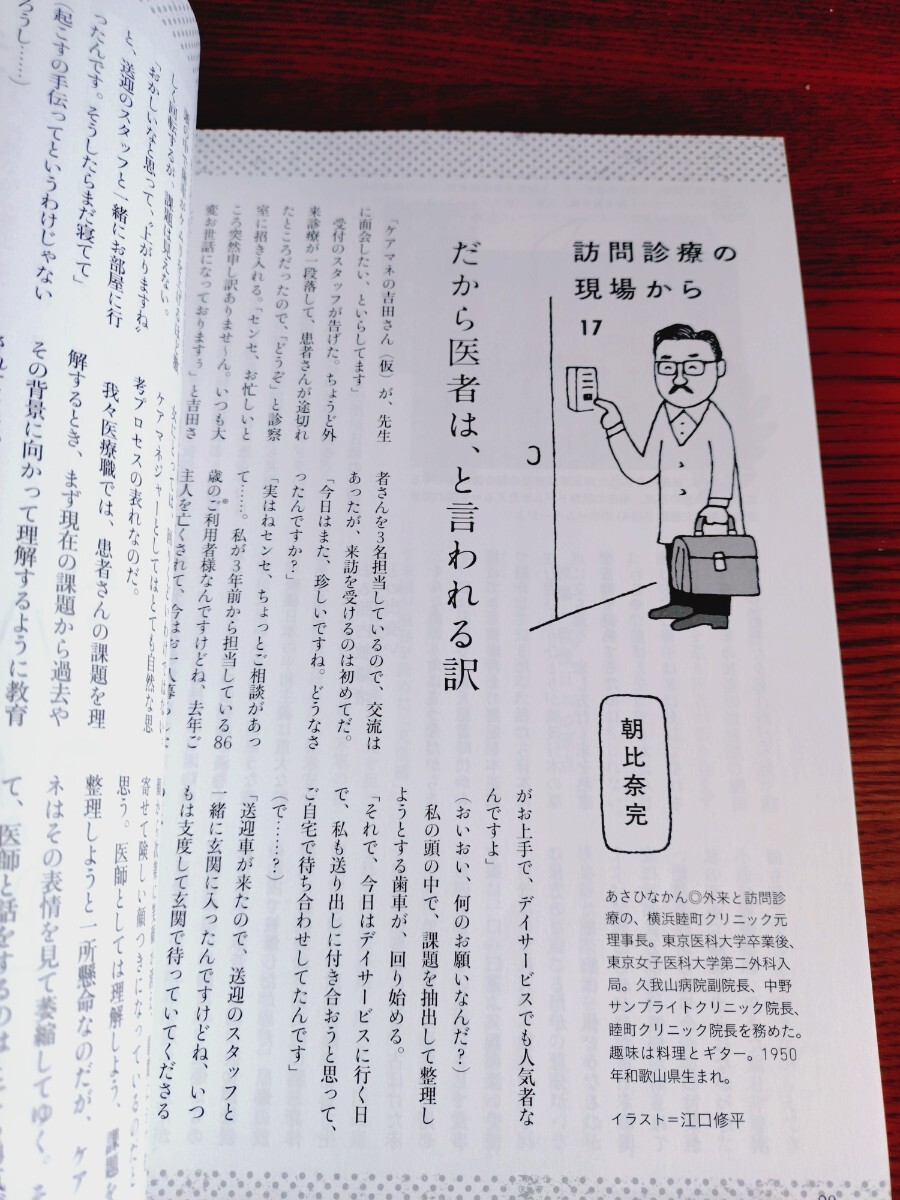 訪問診療の
現場から
17
だから医者は、と言われる訳
朝比奈完
あさひなかん◎外来と訪問診
療の、横浜睦町クリニック元
理事長。東京医科大学卒業後、
東京女子医科大学第二外科入
局。久我山病院副院長、中野
サンブライトクリニック院長、
睦町クリニック院長を務めた。
趣味は料理とギター。1950
年和歌山県生まれ。
イラスト=江口修平
「ケアマネの吉田さん（仮）が、先生
に面会したい、といらしてます」
受付のスタッフが告げた。ちょうど外
来診療が一段落して、患者さんが途切れ
たところだったので、「どうぞ」と診察
室に招き入れる。「センセ、お忙しいと
ころ突然申し訳ありませ〜ん。いつも大
変お世話になっておりますぅ」と吉田さ
者さんを3名担当しているので、交流は
あったが、来訪を受けるのは初めてだ。
「今日はまた、珍しいですね。どうなさ
ったんですか？」
「実はねセンセ、ちょっとご相談があっ
て……。私が3年前から担当している86
歳のご利用者様なんですけどね、去年ご
主人を亡くされて、今はお一人暮
がお上手で、デイサービスでも人気者な
んですよ」
（おいおい、何のお願いなんだ？）
私の頭の中で、課題を抽出して整理し
ようとする歯車が、回り始める。
「それで、今日はデイサービスに行く日
で、私も送り出しに付き合おうと思って、
ご自宅で待ち合わせしてたんです」
で……？）
「送迎車が来たので、送迎のスタッフと
一緒に玄関に入ったんですけどね、いつ
もは支度して玄関で待っていてくださる
して回転するが、課題は見えない。
「おかしいなと思って、〝上がりますね〟
と、送迎のスタッフと一緒にお部屋に行
ったんです。そうしたらまだ寝てて」
（起こすの手伝ってというわけじゃない
ろうし……）
ケアマネジャーとしてはとても自然な思
考プロセスの表れなのだ。
我々医療職では、患者さんの課題を理
解するとき、まず現在の課題から過去や
その背景に向かって理解するように教育
寄せて険しい顔つきになっているのだ
思う。医師としては理解しよう、課題を
整理しようと一所懸命なのだが、ケア
ネはその表情を見て萎縮してゆく。そ
て、医師と話をするのは